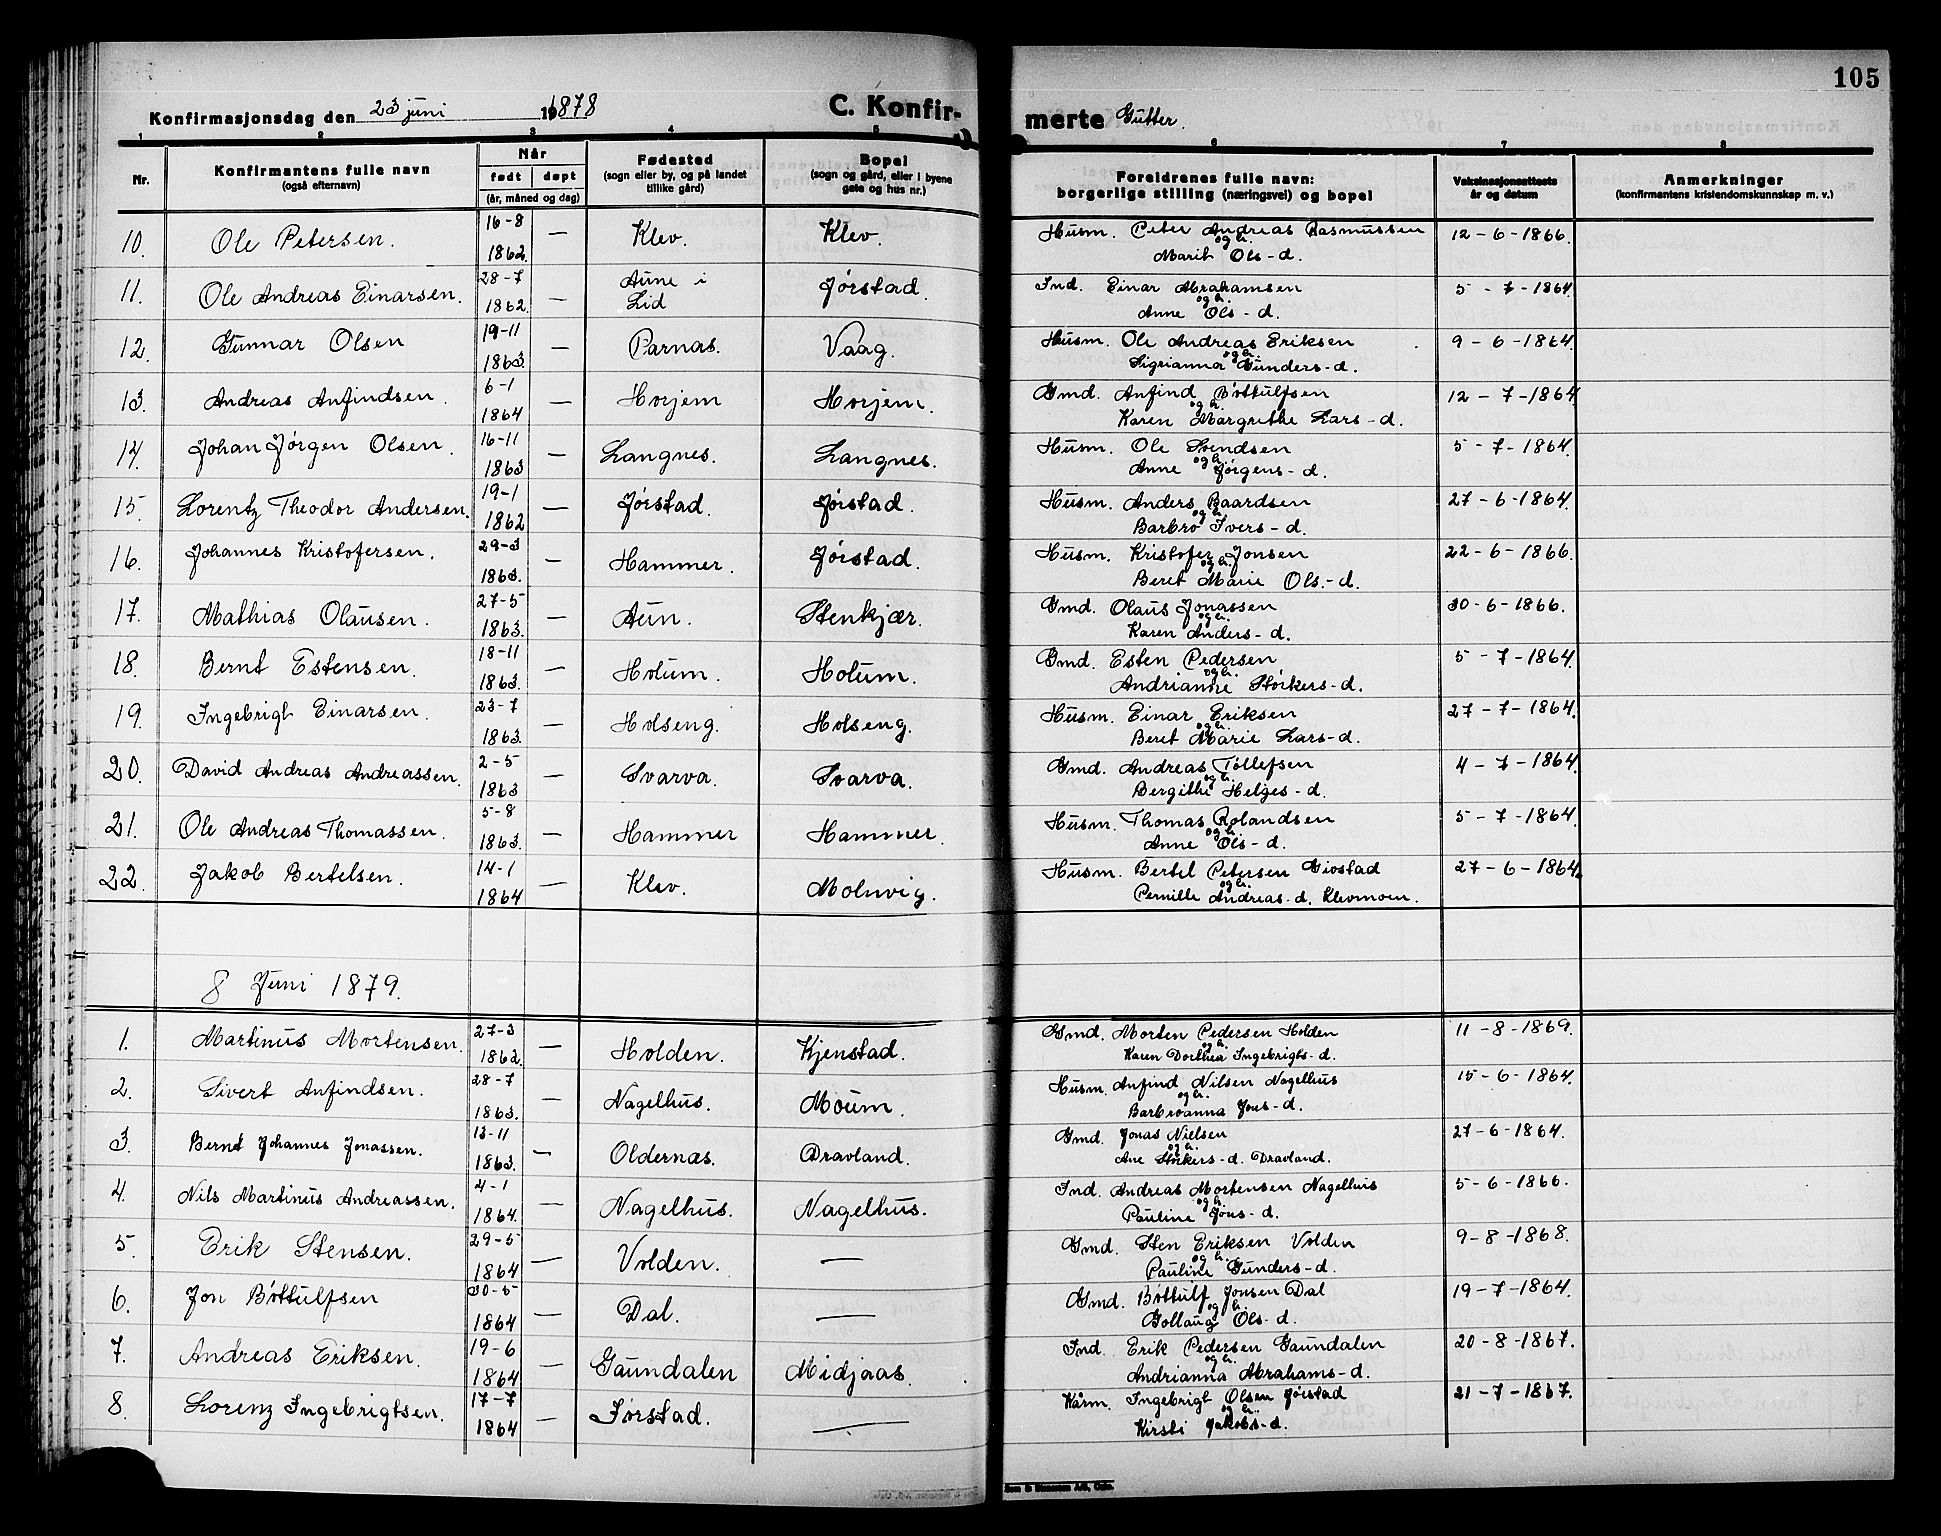 105
Konfirmasjonsdag den 23 juni 19 1878 C. Konfir- merte Gutter.
1 2 3 4 5 6 7 8
Nr. Konfirmantens fulle navn (også efternavn) Når født døpt (år, måned og dag) Fødested (sogn eller by, og på landet tillike gård) Bopel (sogn og gård, eller i byene gate og hus nr.) Foreldrenes fulle navn: borgerlige stilling (næringsvei) og bopel Vaksinasjonsattests år og datum Anmerkninger (konfirmantens kristendomskunnskap m. v.)
10. Ole Petersen. 16-8 1862. — Klev. Klev. Husm. Peter Andreas Rasmussen og h. Marit Ols-d. 12-6-1866.
11. Ole Andreas Einarsen. 28-7 1862. — Aune i Lid Jørstad. Ind. Einar Abrahamsen og h. Anne Ols-d. 5-7-1864.
12. Gunnar Olsen 19-11 1863. — Parnas. Vaag. Husm. Ole Andreas Eriksen og h. Sigrianna Gunders-d. 9-6-1864.
13. Andreas Anfindsen. 6-1 1864 — Horjem Horjem. Gmd. Anfind Bottulfsen og h. Karen Margrethe Lars-d. 12-7-1864.
14. Johan Jørgen Olsen. 16-11 1863 — Langnes. Langnes. Husm. Ole Svendsen og h. Anne Jørgens-d. 5-7-1864.
15. Lorentz Theodor Andersen. 19-1 1862 — Jørstad. Jørstad. Husm. Anders Baardsen og h. Barbro Ivers-d. 27-6-1864.
16. Johannes Kristofersen. 29-3 1863. — Hammer. Jørstad. Husm. Kristofer Jonsen og h. Beret Marie Ols.-d. 22-6-1866.
17. Mathias Olausen. 27-5 1863. — Aun. Stenkjær. Gmd. Olaus Jonassen og h. Karen Anders-d. 30-6-1866.
18. Bernt Estensen. 18-11 1863. — Holum. Holum. Gmd. Esten Pedersen og h. Andrianne Störkers-d. 5-7-1864.
19. Ingebrigt Einarsen. 23-7 1863. — Holseng. Holseng. Husm. Einar Eriksen og h. Beret Marie Lars-d. 27-7-1864.
20. David Andreas Andreassen. 2-5 1863 — Svarva. Svarva. Gmd. Andreas Tollefsen og h. Bergithe Helges-d. 4-7-1864.
21. Ole Andreas Thomassen. 5-8 1863. — Hammer Hammer. Husm. Thomas Rolandsen og h. Anne Ols-d. 5-7-1864.
22. Jakob Bertelsen. 14-1 1864 — Klev. Molnvig. Husm. Bertel Petersen Givstad og h. Pernille Andreas-d. Klevmoen. 27-6-1864.
8 Juni 1879.
1. Martinus Mortensen. 27-3 1862. — Holden. Kjenstad. Gmd. Morten Pedersen Holden og h. Karen Dorthea Ingebrigts-d. 11-8-1869.
2. Sivert Anfindsen. 28-7 1863. — Nagelhus. Moum. Husm Anfind Nilsen Nagelhus og h. Barbroanna Jons-d. 15-6-1864.
3. Bernt Johannes Jonassen. 13-11 1863. — Oldernæs. Dravland. Gmd. Jonas Nielsen og h. Ane Störkers-d. Dravland. 27-6-1864.
4. Nils Martinus Andreassen. 4-1 1864. — Nagelhus. Nagelhus. Ind. Andreas Mortensen Nagelhus og h. Pauline Jons-d. 5-6-1866.
5. Erik Stensen. 29-5 1864 — Volden. — Gmd. Sten Eriksen Volden og h. Pauline Gunders-d. 9-8-1868.
6. Jon Bottulfsen 30-5 1864 — Dal. — Gmd. Bottulf Jonsen Dal og h. Gollaug Ols-d. 19-7-1864.
7. Andreas Eriksen. 19-6 1864 — Gaundalen Midjaas. Ind. Erik Pedersen Gaundalen og h. Andrianna Abrahams-d. 20-8-1867.
8. Lorenz Ingebrigtsen. 17-7 1864 — Jørstad. — Kårm. Ingebrigt Olsen Jørstad og h. Kirsti Jakobs-d. 21-7-1867.